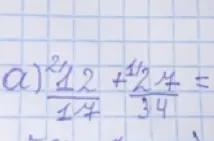 а) 2/ 12/17 + 1/ 27/34 =